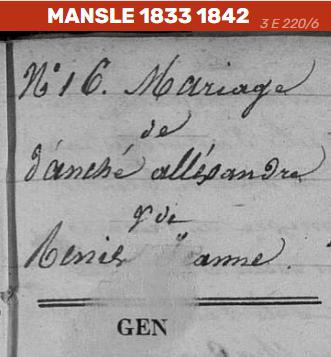 MANSLE 1833 1842 3 E 220/6
N° 16. Mariage
de
d'anché alléxandre
& de
anne.
GEN